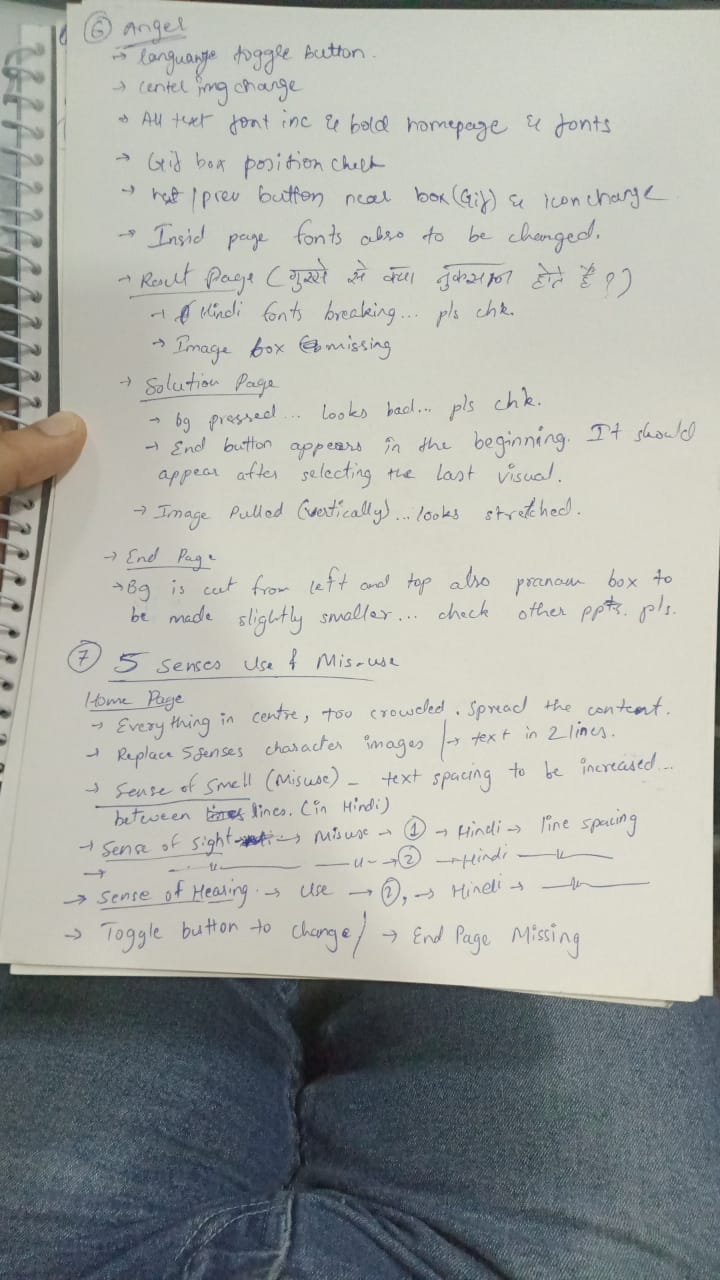 ⑥ Angel
→ languange toggle button.
→ center img change
→ All text font inc & bold homepage & fonts
→ Gif box position check
→ nxt / prev button near box (Gif) & icon change
→ Insid page fonts also to be changed.
→ Reult Page (गुस्से से क्या नुकसान होते हैं ?)
→ Hindi fonts breaking... pls chk.
→ Image box missing
→ Solution Page
→ bg pressed... looks bad... pls chk.
→ End button appears in the beginning. It should
appear after selecting the last visual.
→ Image Pulled (vertically)... looks stretched.
→ End Page
→ Bg is cut from left and top also pranam box to
be made slightly smaller... check other ppts. pls.
⑦ 5 Senses Use & Mis-use
Home Page
→ Everything in centre, too crowded. Spread the content.
→ Replace 5 senses character images / → text in 2 lines.
→ Sense of Smell (Misuse) – text spacing to be increased...
between lines. (in Hindi)
→ Sense of Sight → Misuse → ① → Hindi → line spacing
→ —〃— —〃— → ② → Hindi —〃—
→ Sense of Hearing. → Use → ②, → Hindi → —〃—
→ Toggle button to change / → End Page Missing